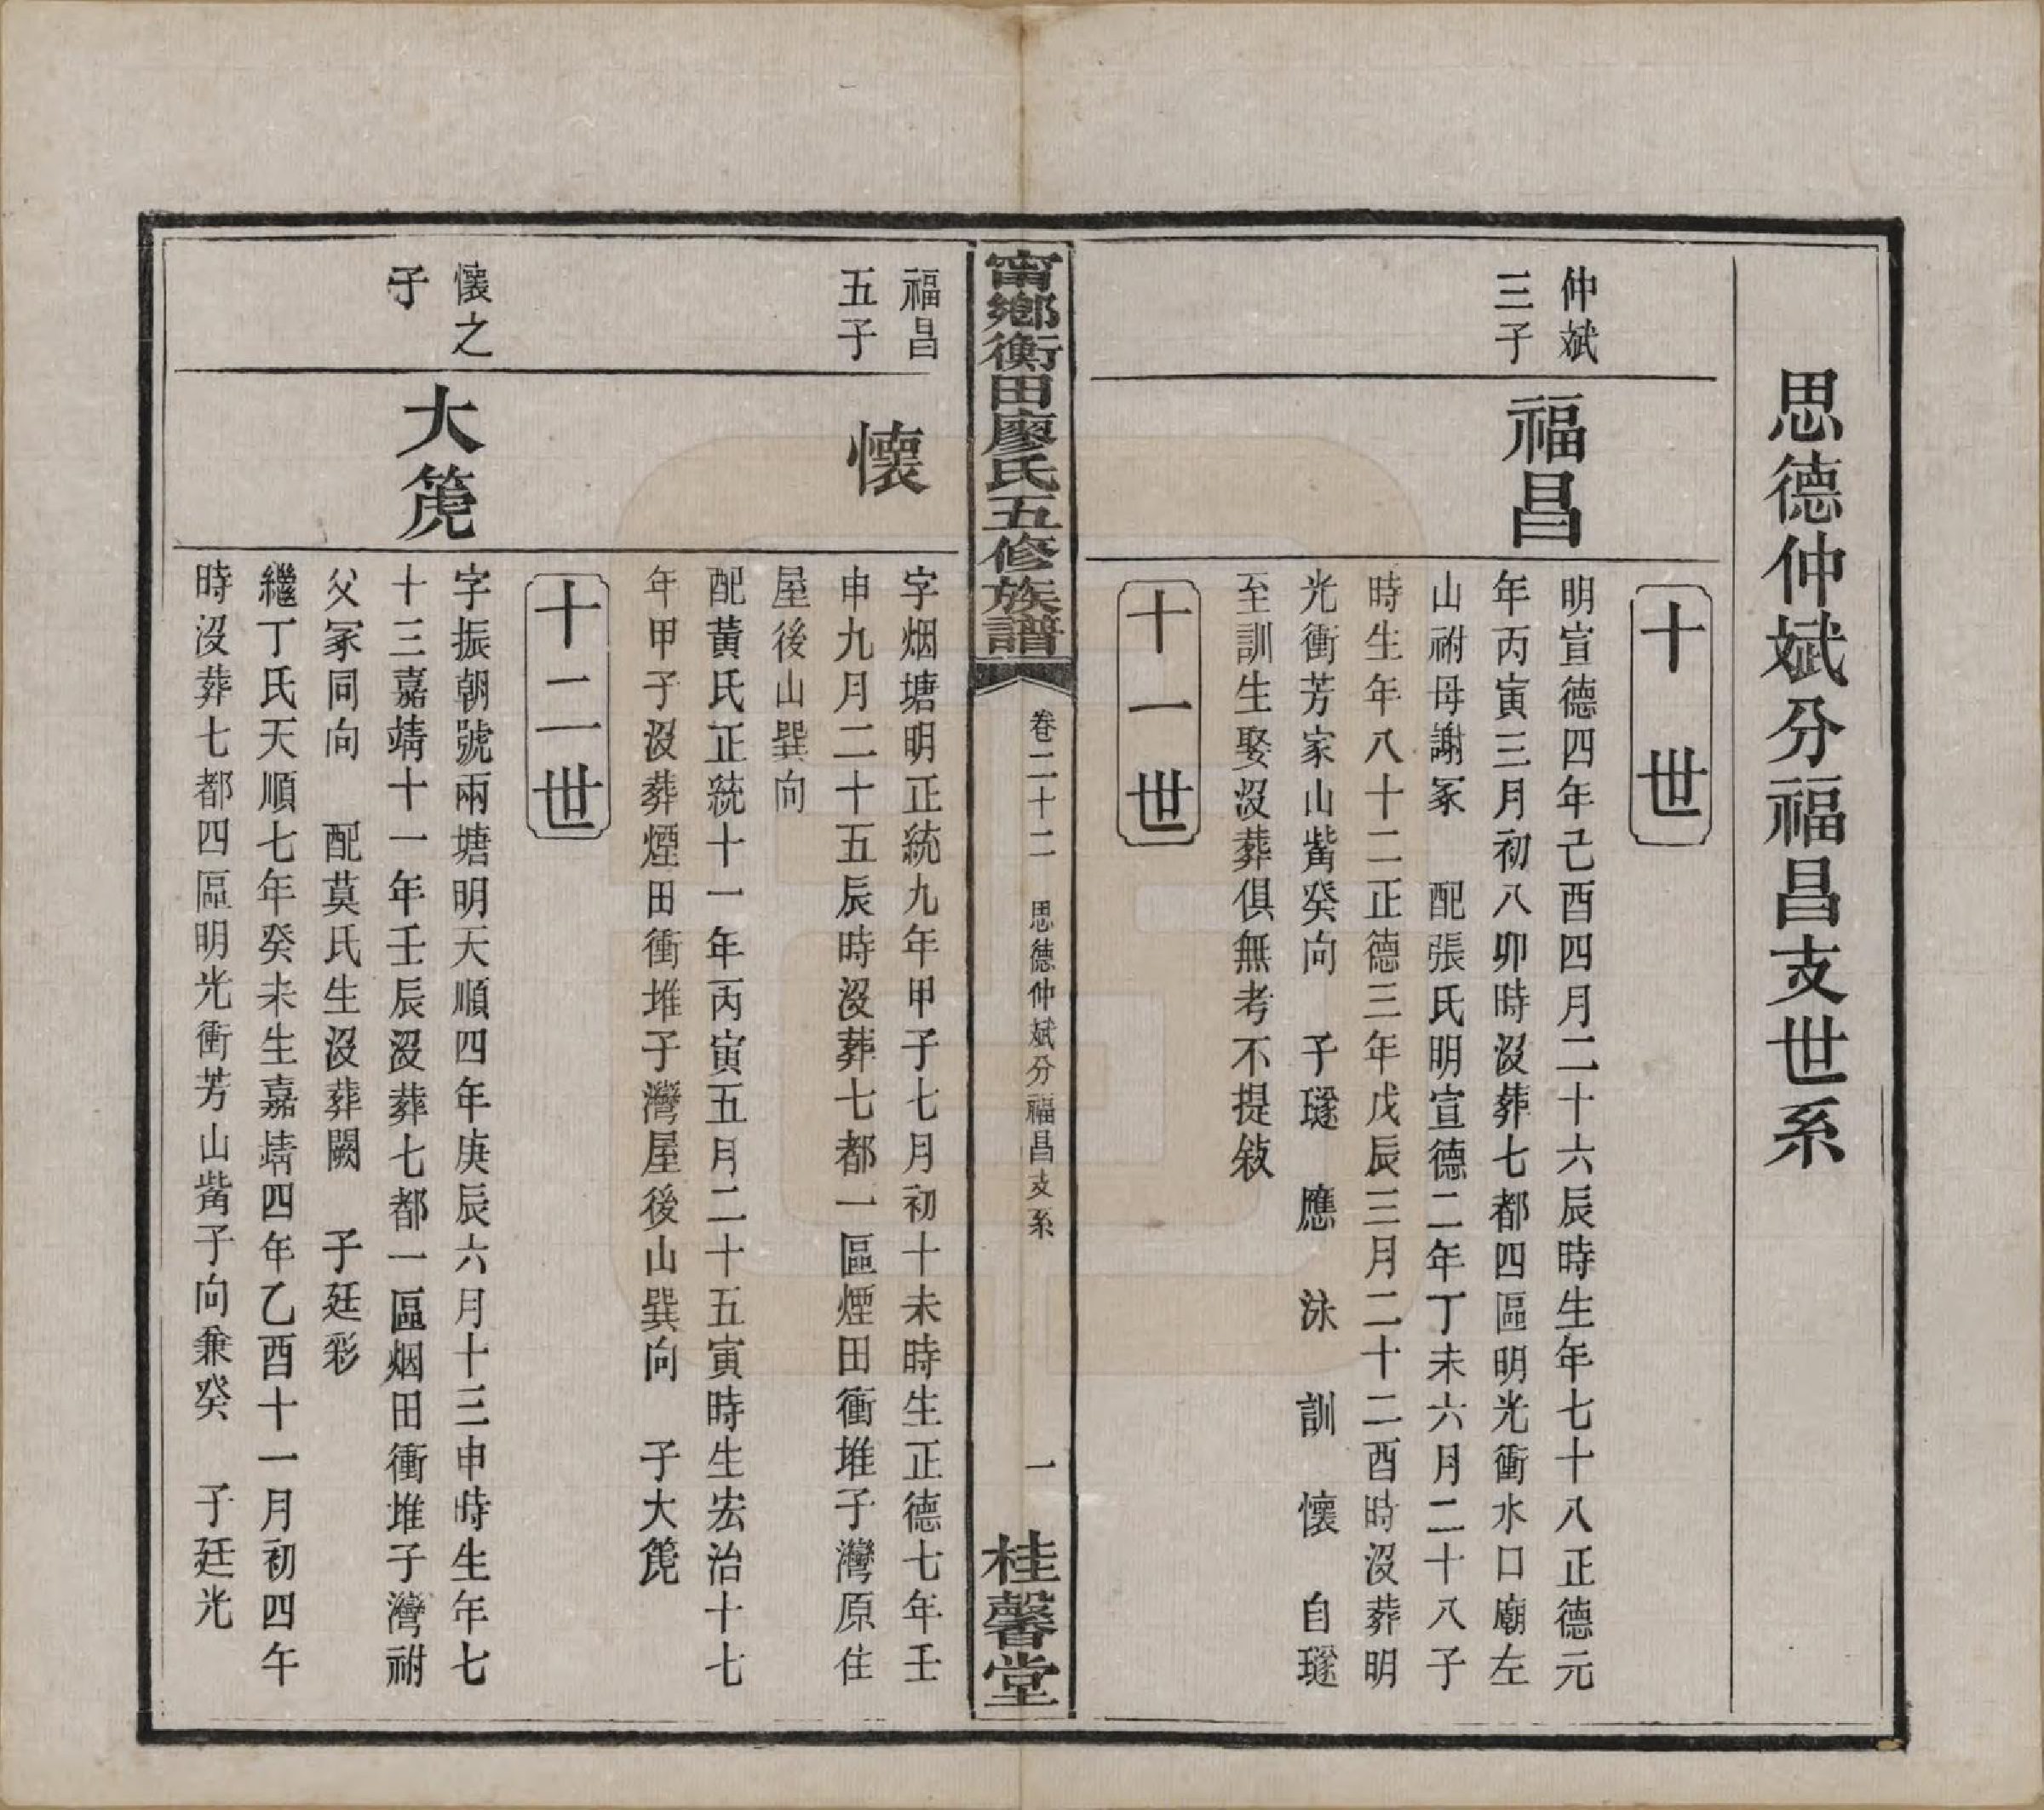 思德仲斌分福昌支世系
十世
仲斌
三子
福昌
明宣德四年己酉四月二十六辰時生年七十八正德元
年丙寅三月初八卯時沒葬七都四區明光衝水口廟左
山祔母謝冢 配張氏明宣德二年丁未六月二十八子
時生年八十二正德三年戊辰三月二十二酉時沒葬明
光衝芳家山觜癸向 子璲 應 泳 訓 懷 自璲
至訓生娶沒葬俱無考不提敍
十一世
甯鄉衡田廖氏五修族譜
卷二十二 思德仲斌分福昌支系
一
桂馨堂
福昌
五子
懷
字烟塘明正統九年甲子七月初十未時生正德七年壬
申九月二十五辰時沒葬七都一區煙田衝堆子灣原住
屋後山巽向
配黃氏正統十一年丙寅五月二十五寅時生宏治十七
年甲子沒葬煙田衝堆子灣屋後山巽向 子大箎
十二世
懷之
子
大箎
字振朝號兩塘明天順四年庚辰六月十三申時生年七
十三嘉靖十一年壬辰沒葬七都一區烟田衝堆子灣祔
父冢同向 配莫氏生沒葬闕 子廷彩
繼丁氏天順七年癸未生嘉靖四年乙酉十一月初四午
時沒葬七都四區明光衝芳山觜子向兼癸 子廷光